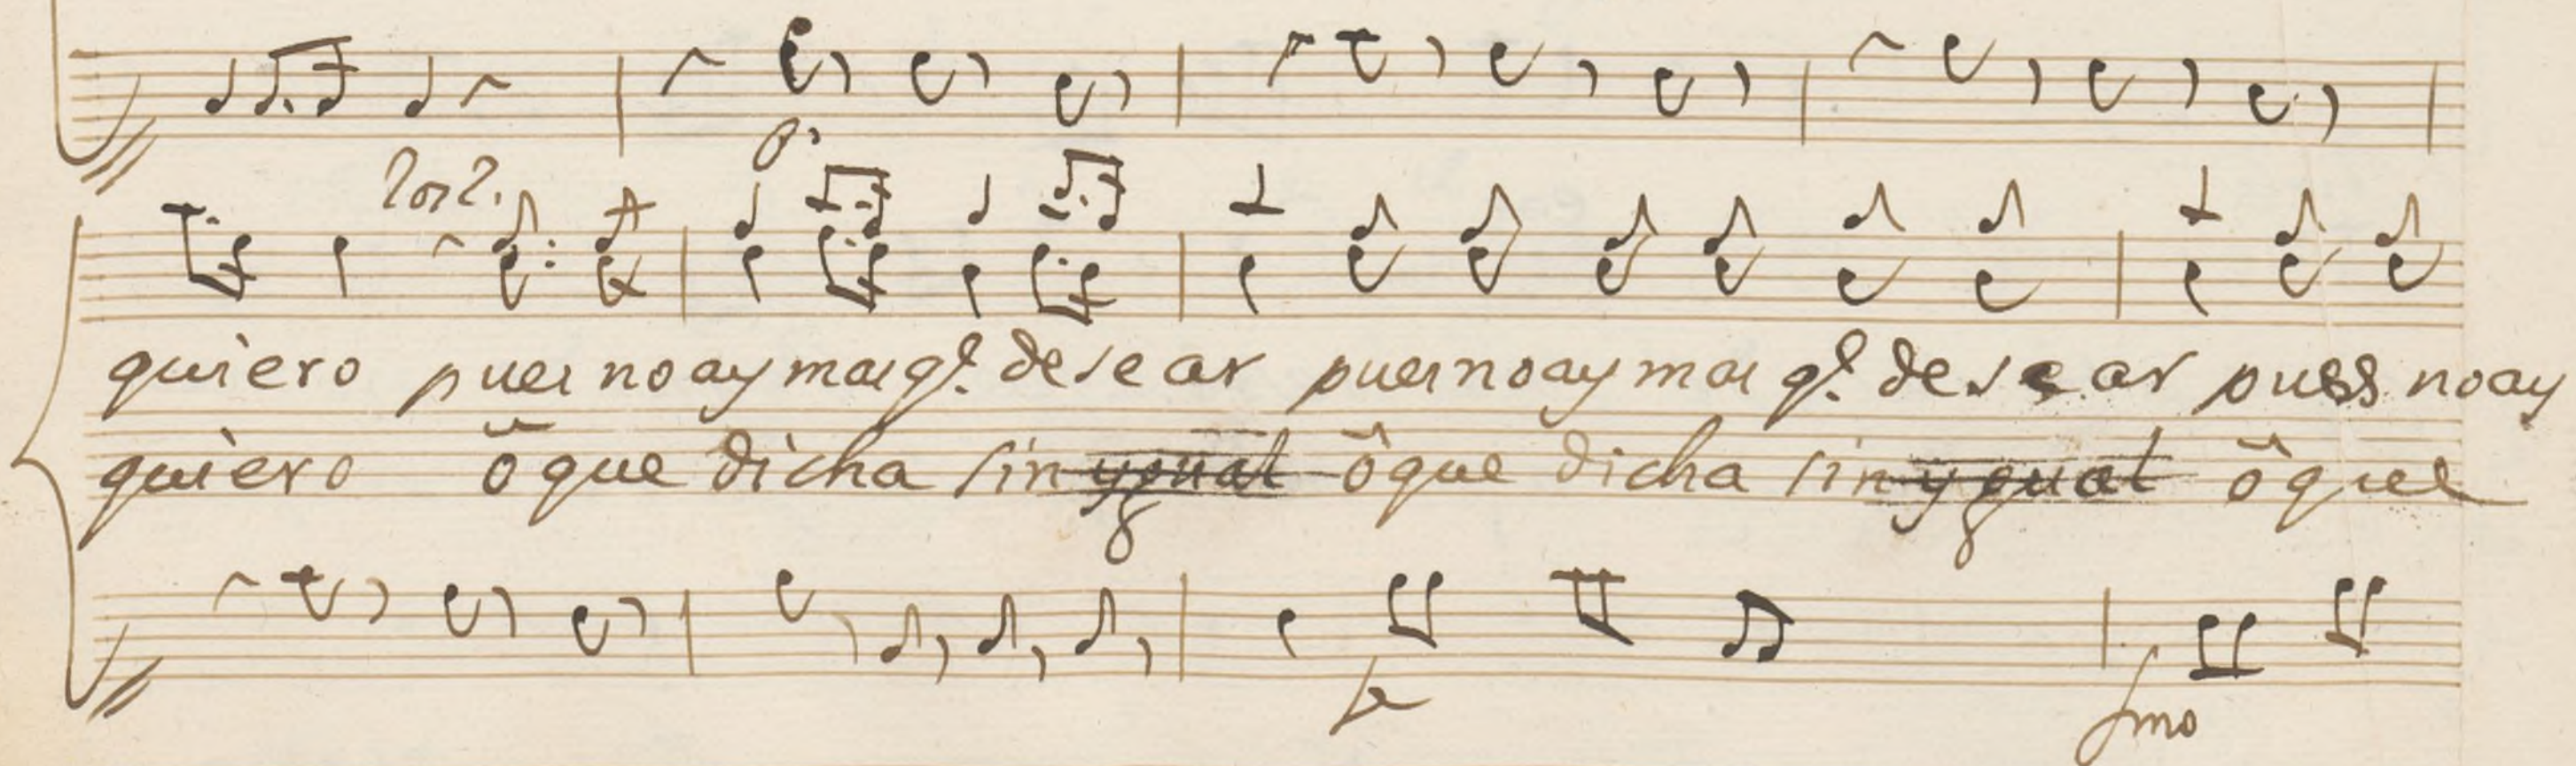 p.
Los 2.
quiero pues no ay mas q.e desear pues no ay mas q.e desear puess no ay
quiero ô que dicha sin ygual ô que dicha sin ygual ô que
fe
fmo